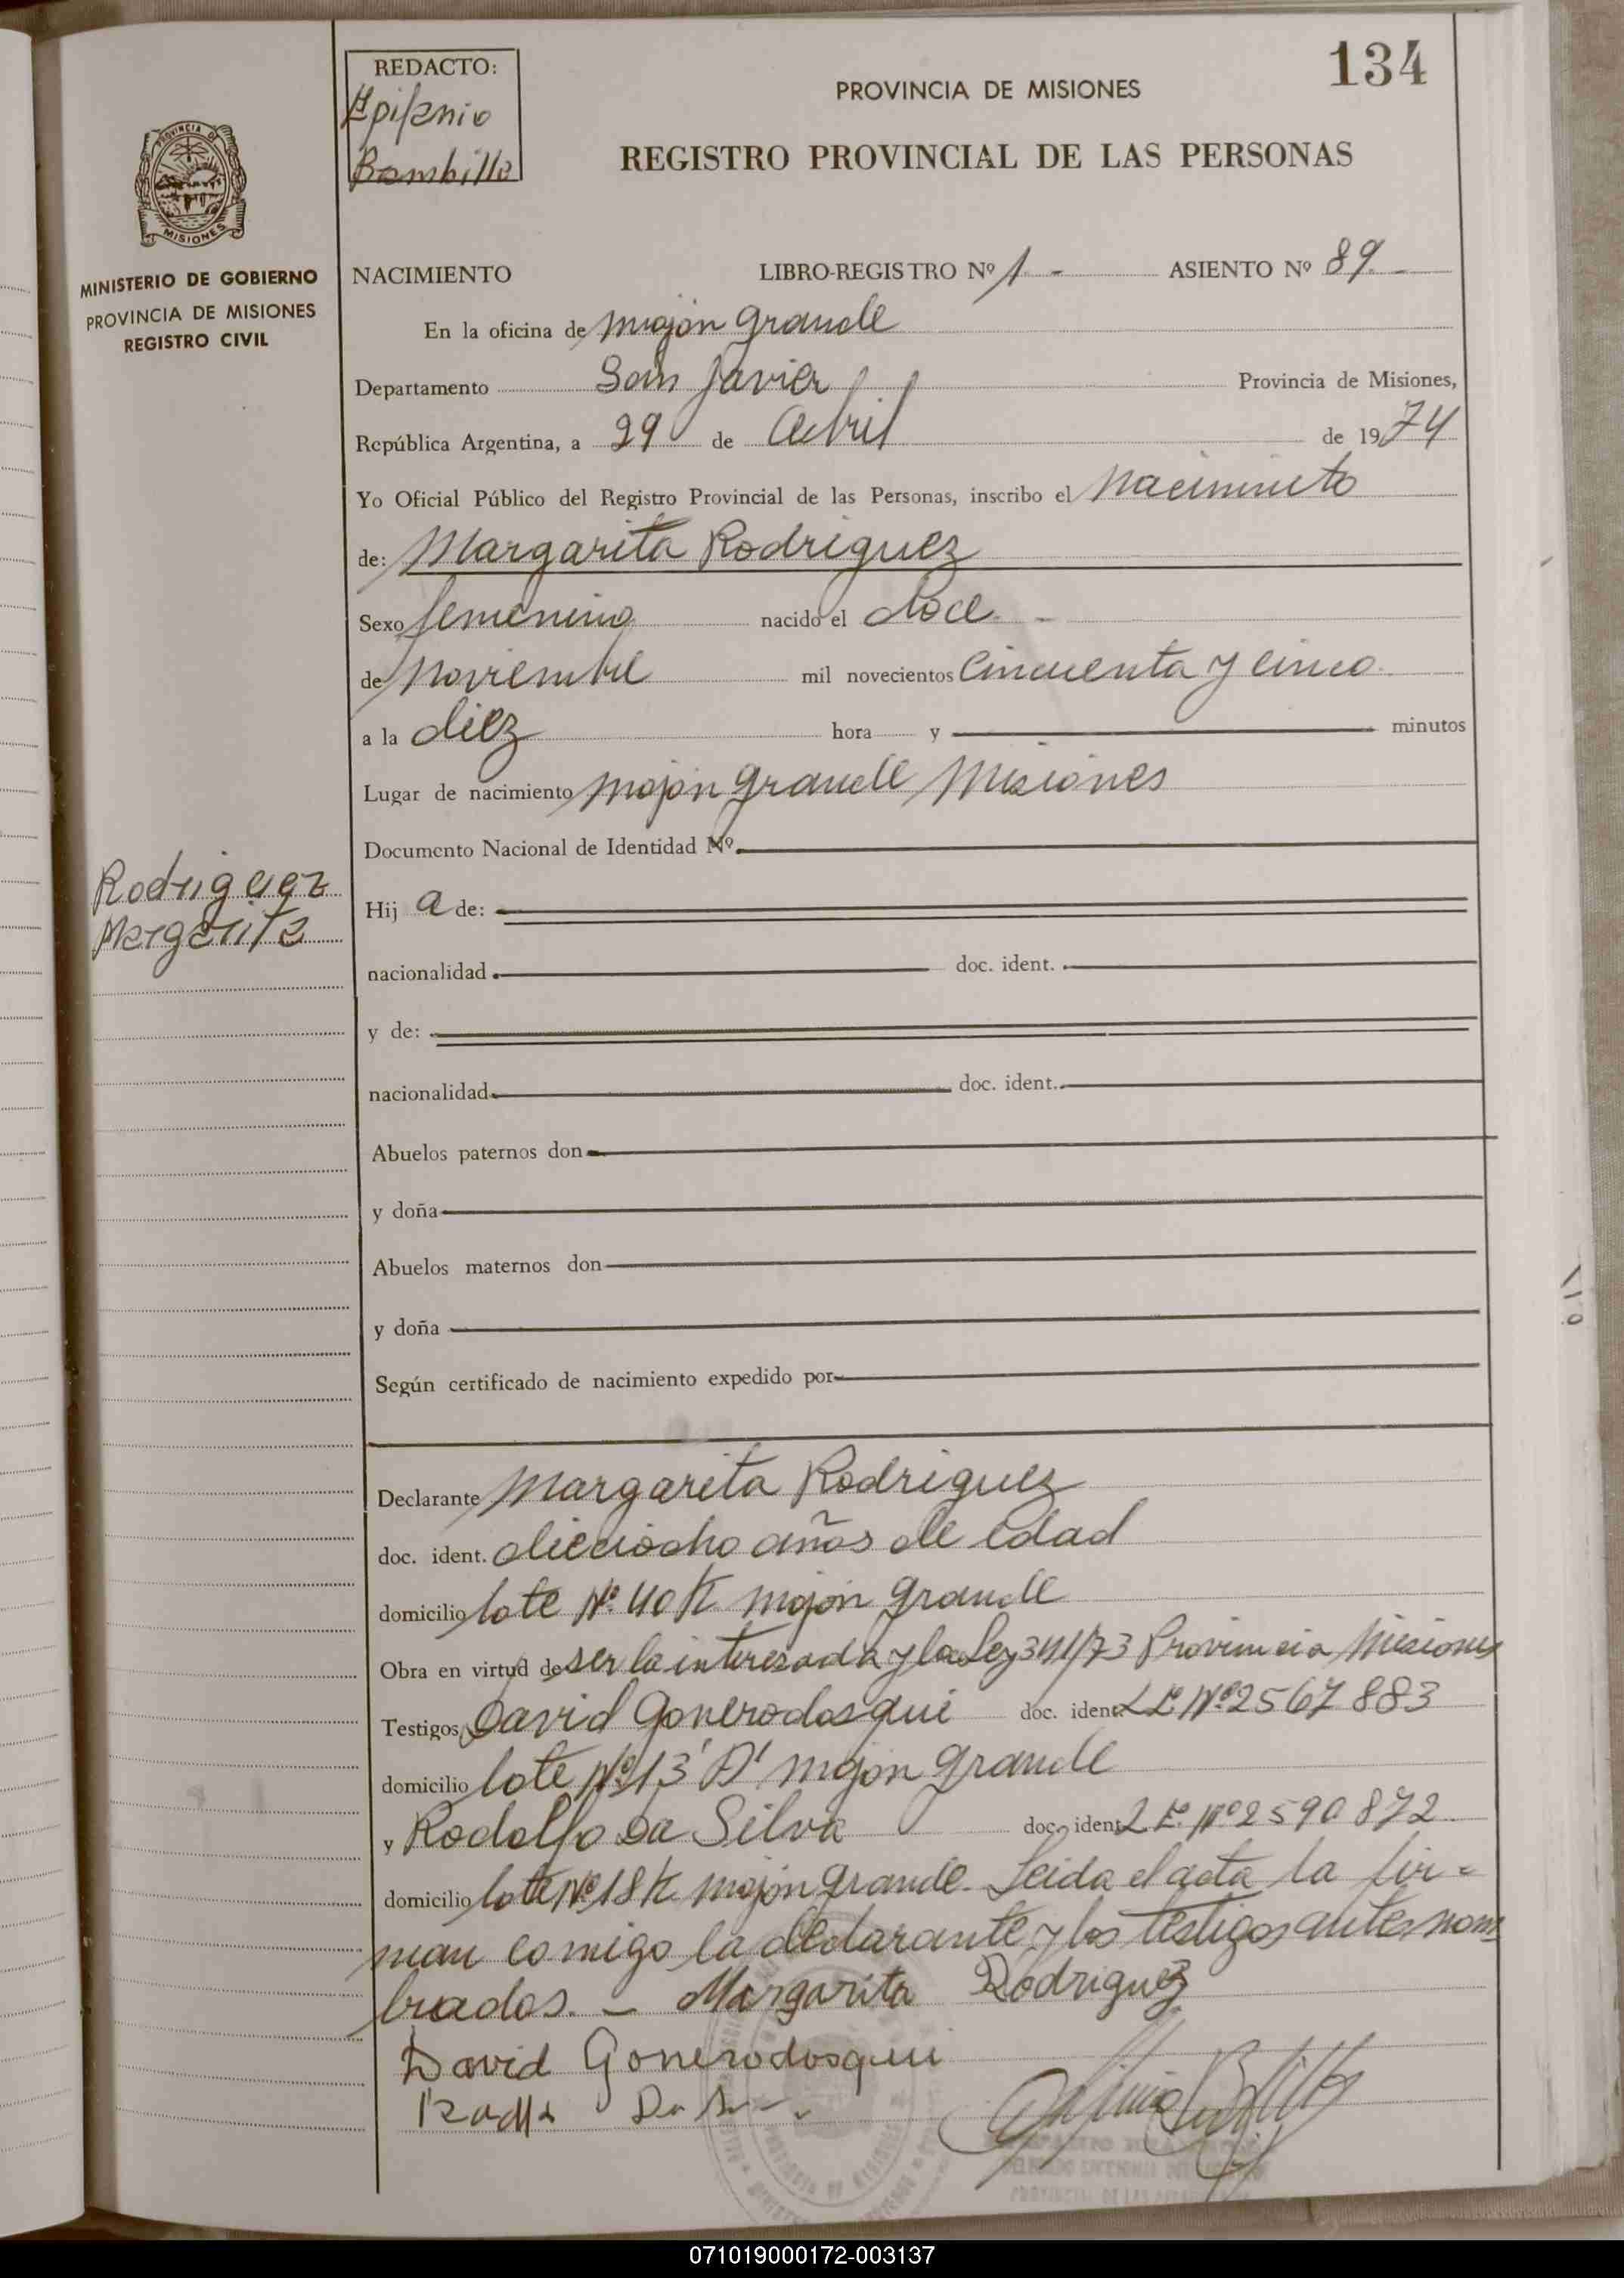 134
REDACTO:
Epifanio
Bombilla
PROVINCIA DE MISIONES
REGISTRO PROVINCIAL DE LAS PERSONAS
PROVINCIA DE
MISIONES
MINISTERIO DE GOBIERNO
PROVINCIA DE MISIONES
REGISTRO CIVIL
NACIMIENTO LIBRO-REGISTRO Nº 1 - ASIENTO Nº 89 -
En la oficina de Mojón Grande
Departamento San Javier Provincia de Misiones,
República Argentina, a 29 de Abril de 1974
Yo Oficial Público del Registro Provincial de las Personas, inscribo el Nacimineto
de: Margarita Rodriguez
Sexo femenino nacido el doce -
de Noviembre mil novecientos Cincuenta y cinco
a la diez hora y minutos
Lugar de nacimiento Mojón Grande Misiones
Documento Nacional de Identidad Nº
Rodriguez
Margarita
Hij a de:
nacionalidad doc. ident.
y de:
nacionalidad doc. ident.
Abuelos paternos don
y doña
Abuelos maternos don
y doña
Según certificado de nacimiento expedido por
Declarante Margarita Rodriguez
doc. ident. dieciocho años de edad
domicilio lote Nº 40 K Mojón Grande
Obra en virtud de ser la interesada y la Ley 311/73 Provincia Misiones
Testigos David Gonerodosqui doc. ident LE Nº 2567883
domicilio lote Nº 13 'D' Mojón Grande
y Rodolfo Da Silva doc. ident L E. Nº 2590872
domicilio lote Nº 18 K Mojón Grande. Leida el acta la fir=
man comigo la declarante y los testigos antes nom
brados. - Margarita Rodriguez
David Gonerodosqui
071019000172-003137